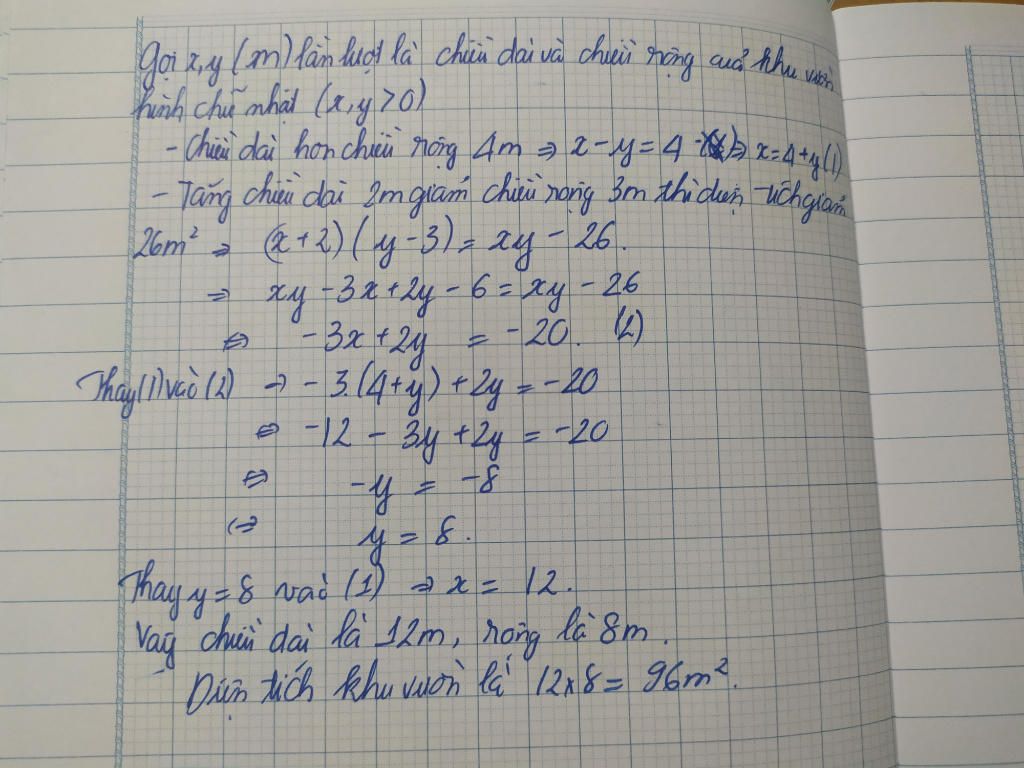 Gọi x, y (m) lần lượt là chiều dài và chiều rộng của khu vườn
hình chữ nhật (x, y > 0)
- Chiều dài hơn chiều rộng 4m => x - y = 4 => x = 4 + y (1)
- Tăng chiều dài 2m giảm chiều rộng 3m thì diện tích giảm
26m² => (x + 2) (y - 3) = xy - 26.
=> xy - 3x + 2y - 6 = xy - 26
<=> - 3x + 2y = - 20. (2)
Thay (1) vào (2) -> - 3.(4 + y) + 2y = - 20
<=> -12 - 3y + 2y = -20
<=> -y = -8
<=> y = 8.
Thay y = 8 vào (1) => x = 12.
Vậy chiều dài là 12m, rộng là 8m.
Diện tích khu vườn là 12 x 8 = 96m².